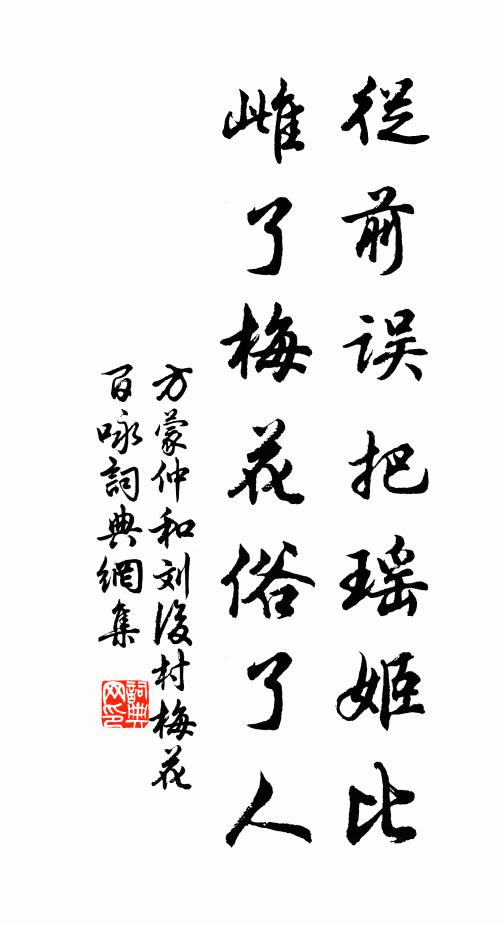 從前误把瑶姬比
雌了梅花俗了人
方蒙仲和刘後村梅花
百咏詞典網集
詞典网印